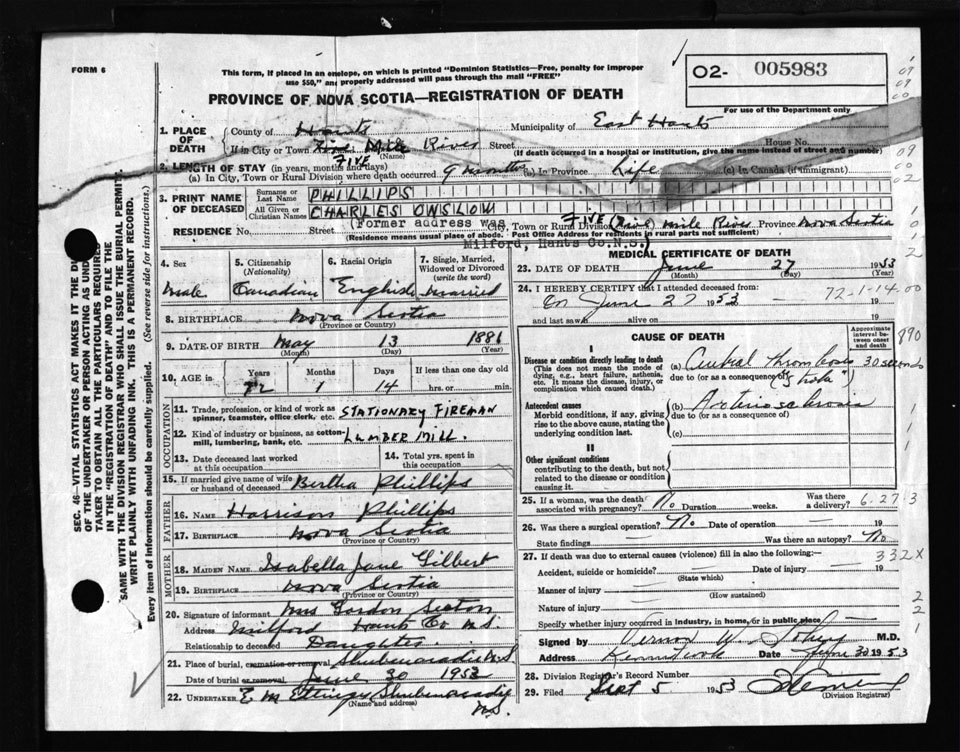 FORM 6
This form, if placed in an enelope, on which is printed "Dominion Statistics—Free, penalty for improper use $50," and properly addressed will pass through the mail "FREE"
O2- 005983
For use of the Department only
PROVINCE OF NOVA SCOTIA—REGISTRATION OF DEATH
1. PLACE OF DEATH
County of Hants Municipality of East Hants
If in City or Town Five Mile River Street House No.
FIVE (Name) (If death occurred in a hospital or institution, give the name instead of street and number)
2. LENGTH OF STAY (in years, months and days)
(a) In City, Town or Rural Division where death occurred 9 months (b) In Province Life (c) In Canada (if immigrant)
3. PRINT NAME OF DECEASED
Surname or Last Name PHILLIPS
All Given or Christian Names CHARLES ONSLOW
(Former address was
RESIDENCE No. Street City, Town or Rural Division FIVE (Five) mile River Province Nova Scotia
(Residence means usual place of abode. Post Office Address for residents in rural parts not sufficient)
Milford, Hants Co.N.S.)
4. Sex Male
5. Citizenship (Nationality) Canadian
6. Racial Origin English
7. Single, Married, Widowed or Divorced (write the word) Married
8. BIRTHPLACE Nova Scotia
(Province or Country)
9. DATE OF BIRTH May 13 1881
(Month) (Day) (Year)
10. AGE in Years Months Days If less than one day
72 1 14 hrs. or min.
OCCUPATION
11. Trade, profession, or kind of work as spinner, teamster, office clerk, etc. STATIONARY FIREMAN
12. Kind of industry or business, as cotton-mill, lumbering, bank, etc. LUMBER MILL.
13. Date deceased last worked at this occupation
14. Total yrs. spent in this occupation
15. If married give name of wife or husband of deceased Bertha Phillips
FATHER
16. NAME Harrison Phillips
17. BIRTHPLACE Nova Scotia
(Province or Country)
MOTHER
18. MAIDEN NAME Isabella Jane Gilbert
19. BIRTHPLACE Nova Scotia
(Province or Country)
20. Signature of informant Mrs Gordon Seaton
Address Milford Hants Co N.S.
Relationship to deceased Daughter
21. Place of burial, cremation or removal Shubenacadie N.S
Date of burial or removal June 30 1953
22. UNDERTAKER E M Ettinger Shubenacadie N.S.
(Name and address)
MEDICAL CERTIFICATE OF DEATH
23. DATE OF DEATH June 27 1953
(Month) (Day)
24. I HEREBY CERTIFY that I attended deceased from:
on June 27 1953 — 19
72-1-14.00
and last saw h alive on 19
CAUSE OF DEATH
Approximate interval between onset and death
890
I
Disease or condition directly leading to death (This does not mean the mode of dying, e.g., heart failure, asthenia, etc. It means the disease, injury, or complication which caused death.)
(a) Cerebral thrombosis 30 seconds
due to (or as a consequence of)
Antecedent causes
Morbid conditions, if any, giving rise to the above cause, stating the underlying condition last.
(b) Arteriosclerosis
due to (or as a consequence of)
(c)
II
Other significant conditions contributing to the death, but not related to the disease or condition causing it.
25. If a woman, was the death associated with pregnancy? No Duration weeks. Was there a delivery?
6.27.3
26. Was there a surgical operation? No Date of operation — 19
State findings — Was there an autopsy? No
27. If death was due to external causes (violence) fill in also the following:—
332X
Accident, suicide or homicide? — Date of injury — 19
(State which)
Manner of injury —
(How sustained)
Nature of injury —
Specify whether injury occurred in industry, in home, or in public place
Signed by Vernon W. M.D.
Address Kennetcook Date June 30 1953
28. Division Registrar's Record Number
29. Filed Sept 5 1953
(Division Registrar)
SEC. 46—VITAL STATISTICS ACT MAKES IT THE DU
OF THE UNDERTAKER OR PERSON ACTING AS UNDER
TAKER TO OBTAIN ALL THE PARTICULARS REQUIRED
IN THE "REGISTRATION OF DEATH" AND TO FILE THE
SAME WITH THE DIVISION REGISTRAR WHO SHALL ISSUE THE BURIAL PERMIT.
WRITE PLAINLY WITH UNFADING INK. THIS IS A PERMANENT RECORD.
Every item of information should be carefully supplied. (See reverse side for instructions.)